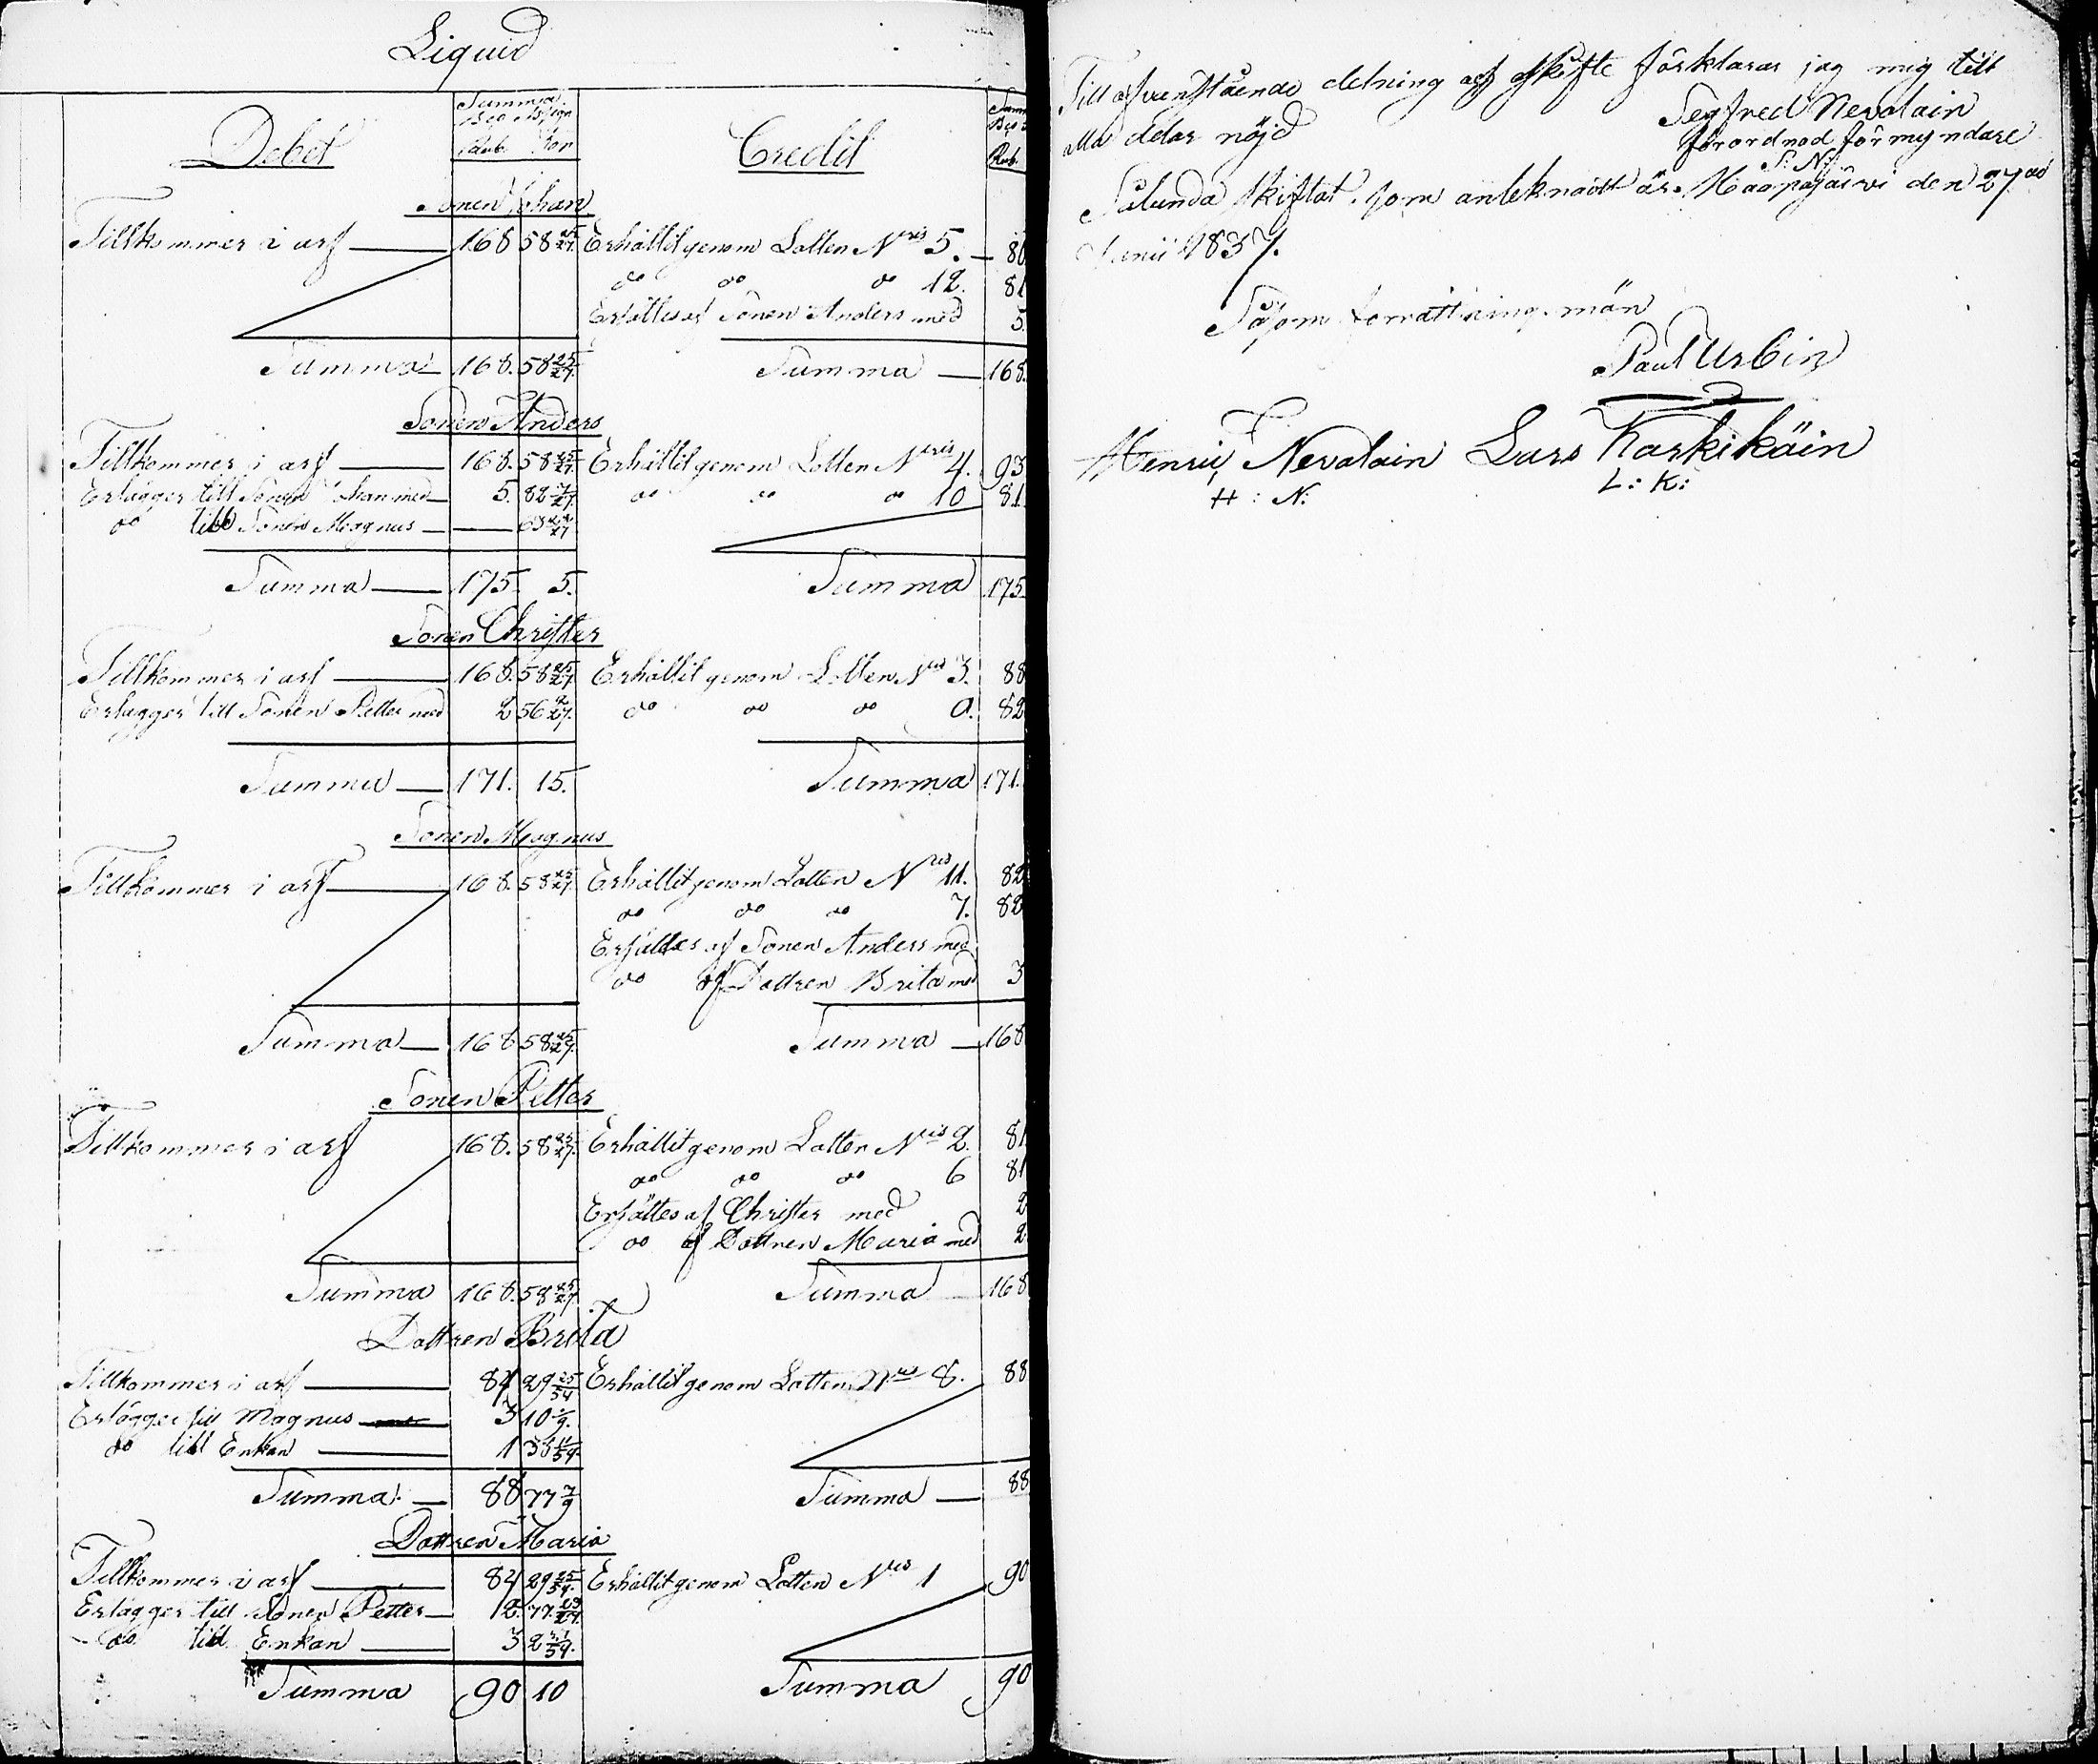 Liquid
Debet
Summa
Bco Assign
Rub. Kop
Credit
Summ
Bco
Rub.
Sonen Johan
Tillkommer i arf — 168 58 25/27. Erhållit genom Lotten Nris 5. — 80
do do do 12. 81
Ersättes af Sonen Anders med 5.
Summa — 168. 58 25/27. Summa — 168.
Sonen Anders
Tillkommer i arf — 168. 58 25/27. Erhållit genom Lotten Nris 4. 93
Erlägger till Sonen Johan med — 5. 82 7/27. do do do 10 81.
do till Sonen Magnus — 63 22/27
Summa — 175. 5. Summa 175.
Sonen Christer
Tillkommer i arf — 168. 58 25/27. Erhållit genom Lotten Nris 3. 88
Erlägger till Sonen Petter med 2 56 2/27. do do do 9. 82
Summa — 171. 15. Summa 171.
Sonen Magnus
Tillkommer i arf — 168. 58 25/27. Erhållit genom Lotten Nris 11. 82
do do do 7. 82
Ersättes af Sonen Anders med
do af Dottren Brita med 3
Summa — 168 58 25/27. Summa — 168
Sonen Petter
Tillkommer i arf 168. 58 25/27. Erhållit genom Lotten Nris 2. 81
do do do 6 81
Ersättes af Christer med 2
do af Dottren Maria med 2
Summa 168. 58 25/27. Summa — 168
Dottren Brita
Tillkommer i arf — 84 29 25/54 Erhållit genom Lotten Nris 8. 88
Erlägger till Magnus — 3 10 /9.
do till Enkan — 1 38 /54.
Summa. — 88 77 7/9 Summa — 88
Dottren Maria
Tillkommer i arf — 84 29 25/54. Erhållit genom Lotten Nris 1 90
Erlägger till Sonen Petter — 2. 77. 23/27.
do till Enkan — 3 2 /54.
Summa 90 10 Summa 90
Till ofvanstående delning af skifte förklarar jag mig till
alla delar nöjd
Segfred Nevalain
förordnad förmyndare
S: N:
Sålunda skiftat som anteknadt är. Haapajärvi den 27de
Junii 1837.
Såsom förrättningsmän
Paul Urbin
Henric Nevalain Lars Karkikäin
H: N: L: K: